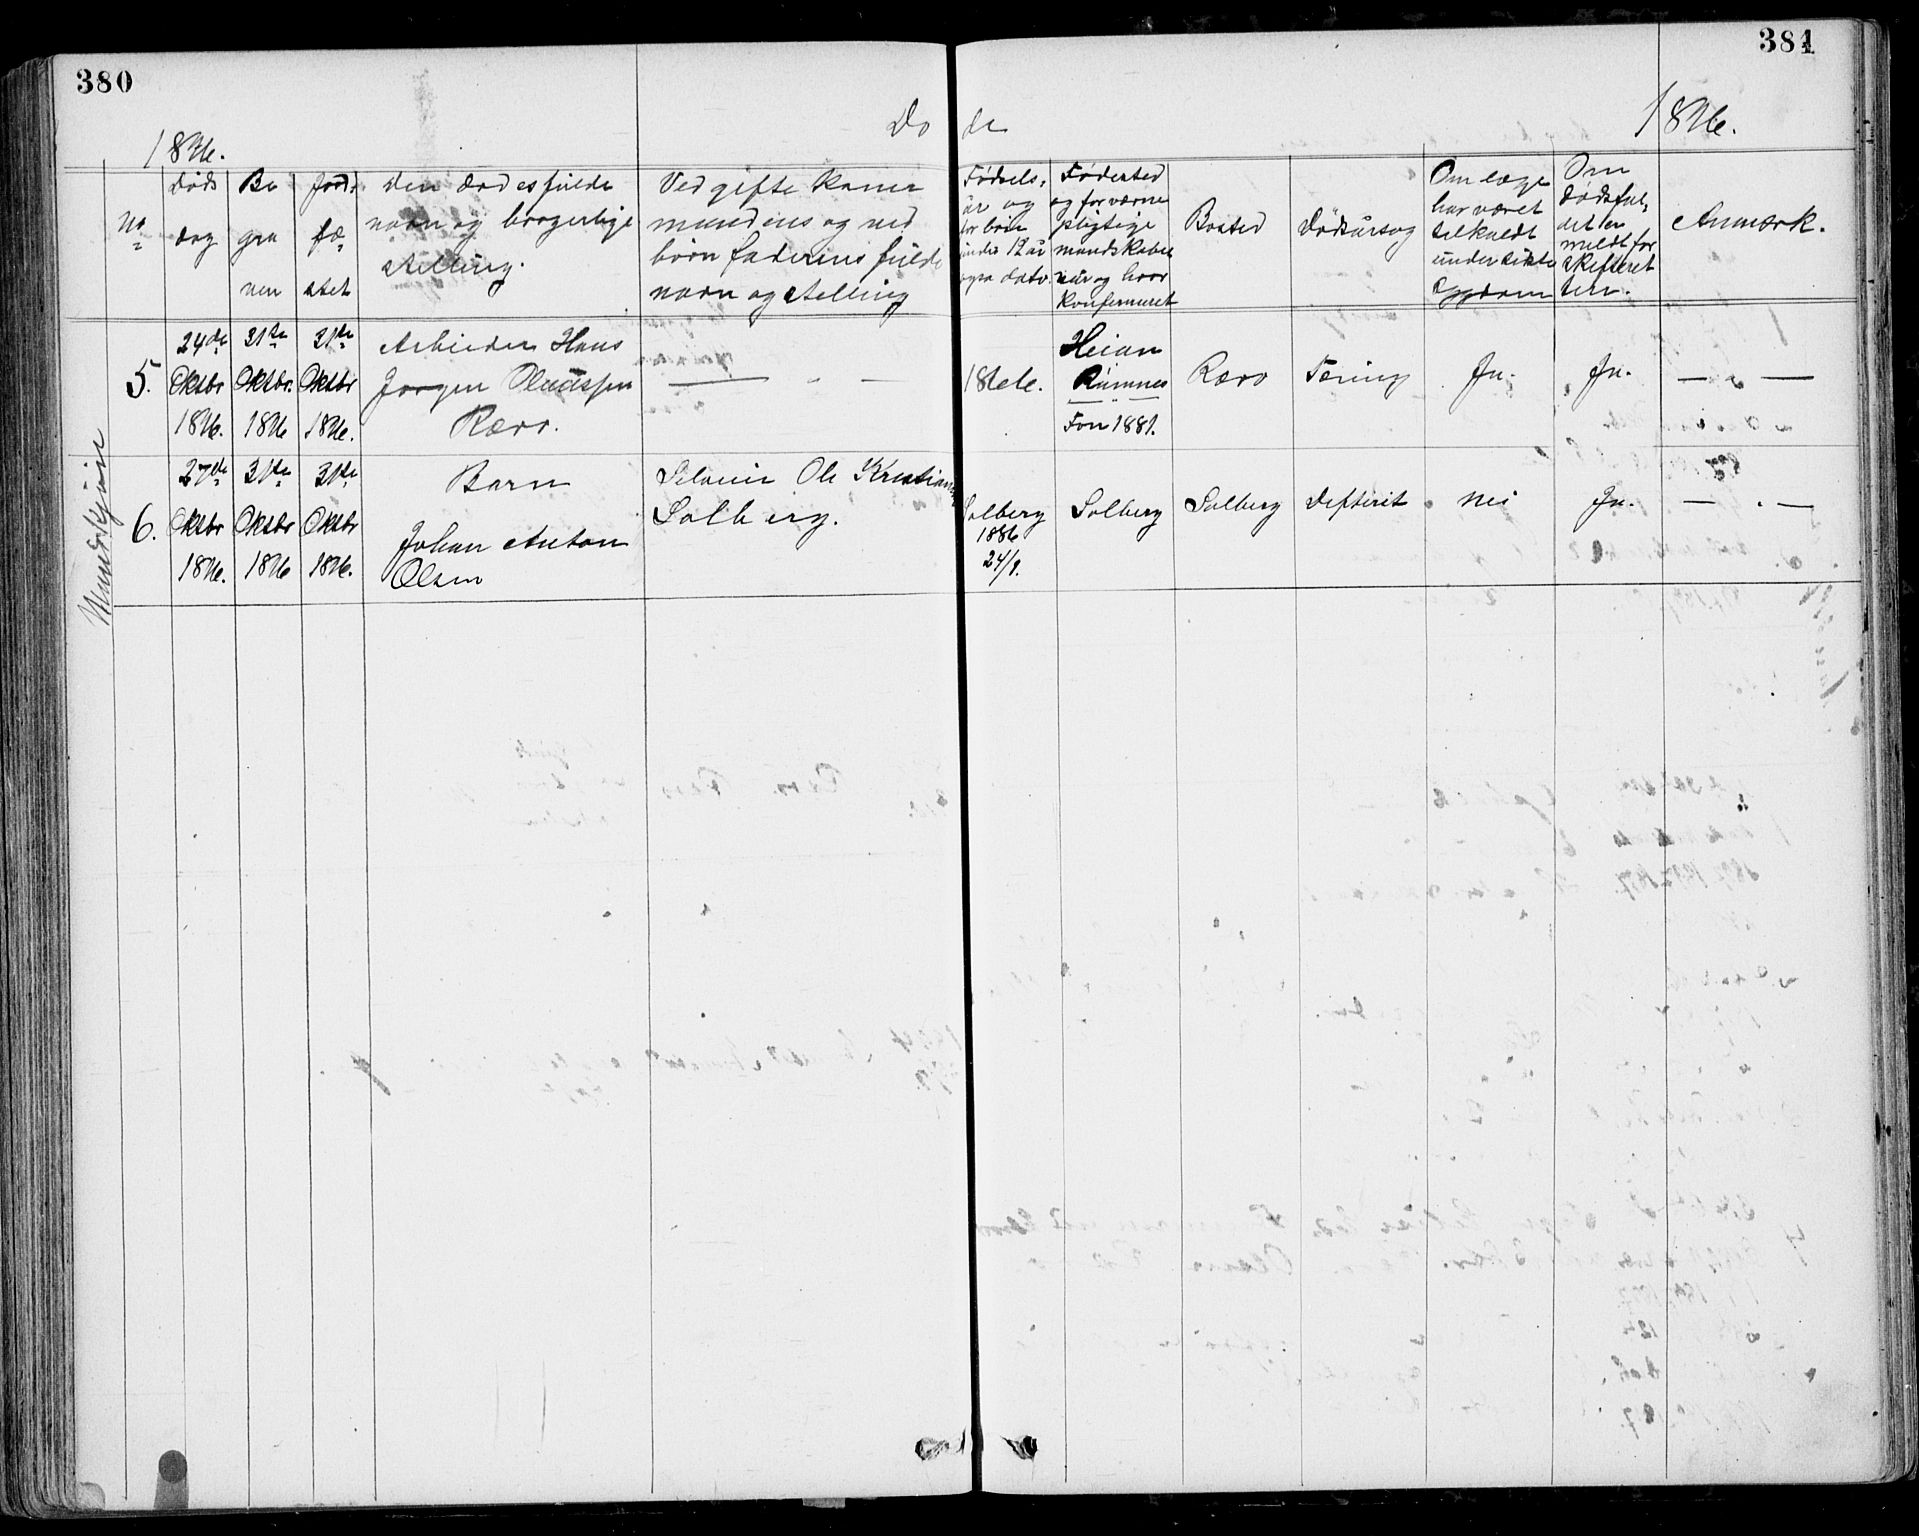 380
381
Dø de
1896.
1896.
No
Døds
dag
Be
gra
ven
Jord
fæ
stet
Den Dødes fulde
navn og borgerlige
stelling.
Ved gifte Koner
mandens og ved
børn faderens fulde
navn og stelling
Fødsels,
år og
for børn
under 12 år
også dato.
Fødested
og for værne
pligtige
mandskaber
når og hvor
Konfirmeret
Bosted
Dødsårsag
Om læge
har været
tilkaldt
under sidste
Sygdom
Om
dødsfal,
det er
meldt for
skifteret
ten.
Anmærk.
5.
24de
Oktbr
1896.
31te
Oktbr.
1896
31te
Oktbr
1896.
Arbeider Hans
Jørgen Olaussen
Rærr.
— - —
1866.
Heian
Ramnes
Fon 1881.
Rærr
Tæring
Ja.
Ja.
— —
6.
27de
Oktbr
1896.
31te
Oktbr
1896
31te
Oktbr
1896.
Barn
Johan Anton
Olsen
Selveier Ole Kristians
Solberg.
Solberg
1886
24/9.
Solberg
Solberg
Defterit
Nei
Ja.
— . —